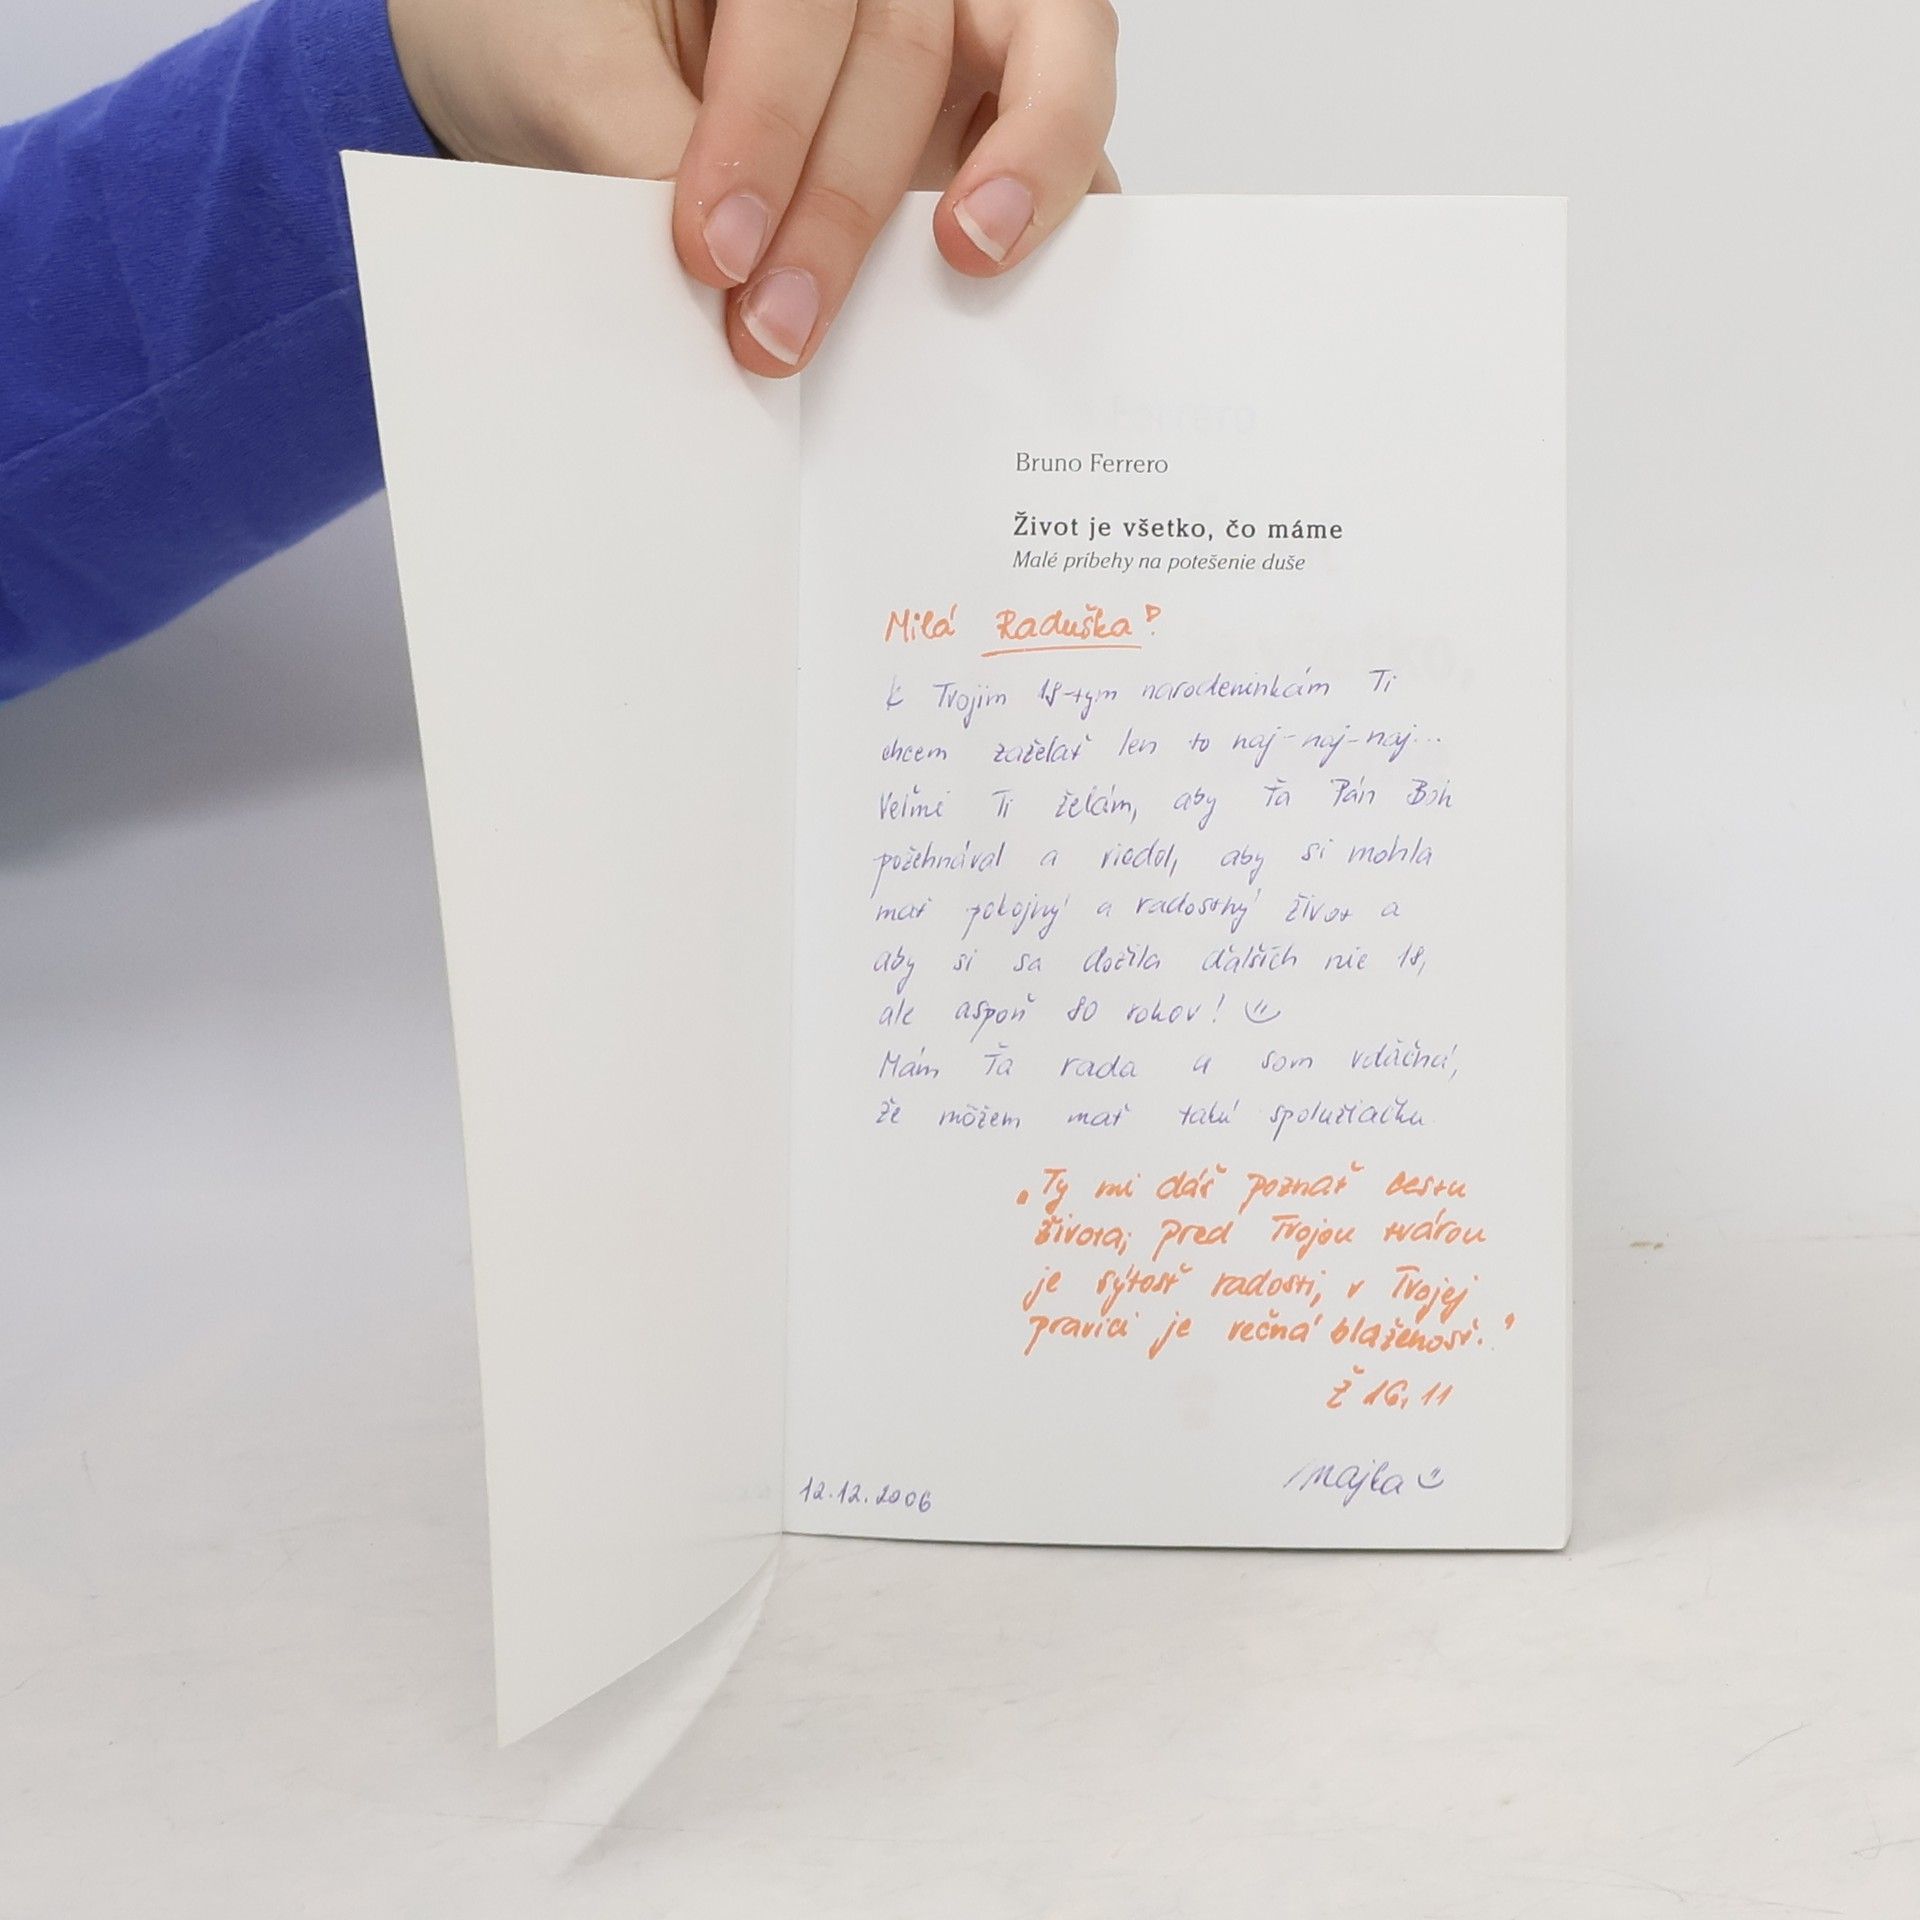 Bruno Ferrero
Život je všetko, čo máme
Malé príbehy na potešenie duše
Milá Raduška!
K Tvojim 18-tym narodeninkám Ti
chcem zaželať len to naj-naj-naj...
Veľmi Ti želám, aby Ťa Pán Boh
požehnával a viedol, aby si mohla
mať pokojný a radostný život a
aby si sa dožila ďalších nie 18,
ale aspoň 80 rokov!
Mám Ťa rada a som vďačná,
že môžem mať takú spolužiačku.
„Ty mi dáš poznať cestu
života; pred Tvojou tvárou
je sýtosť radosti, v Tvojej
pravici je večná blaženosť."
Ž 16, 11
Majka
12.12.2006